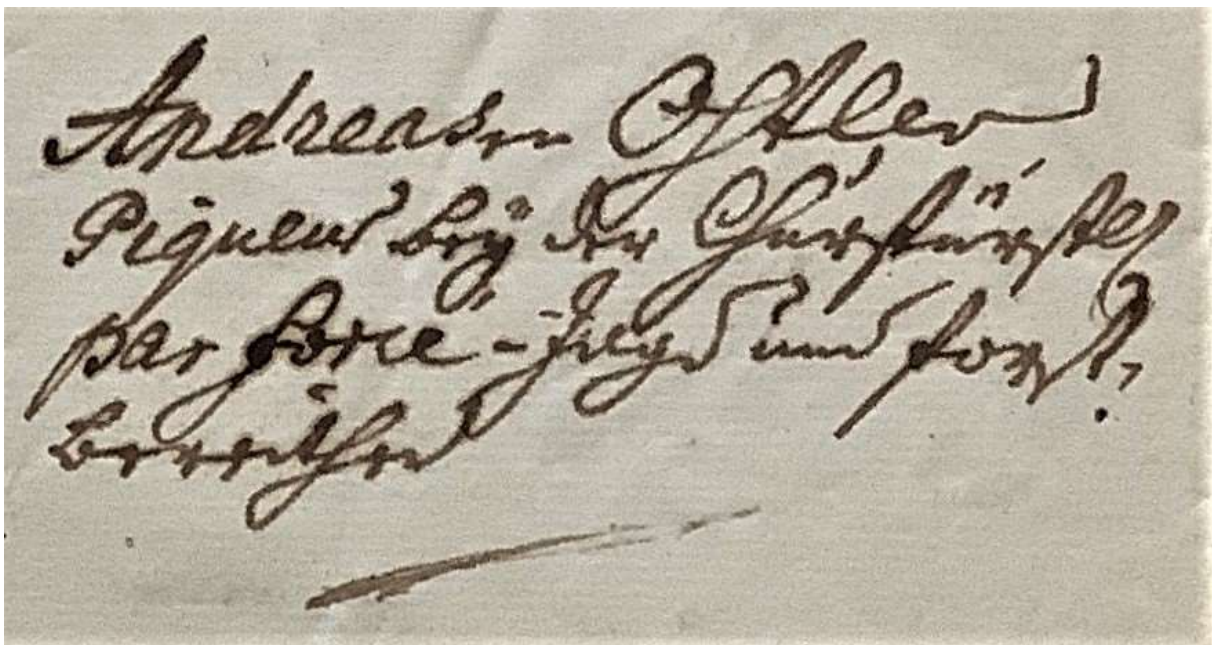 Andreas Ostler
Piqueur beÿ der Churfürstl
par force-Jagd und forst,
bereither